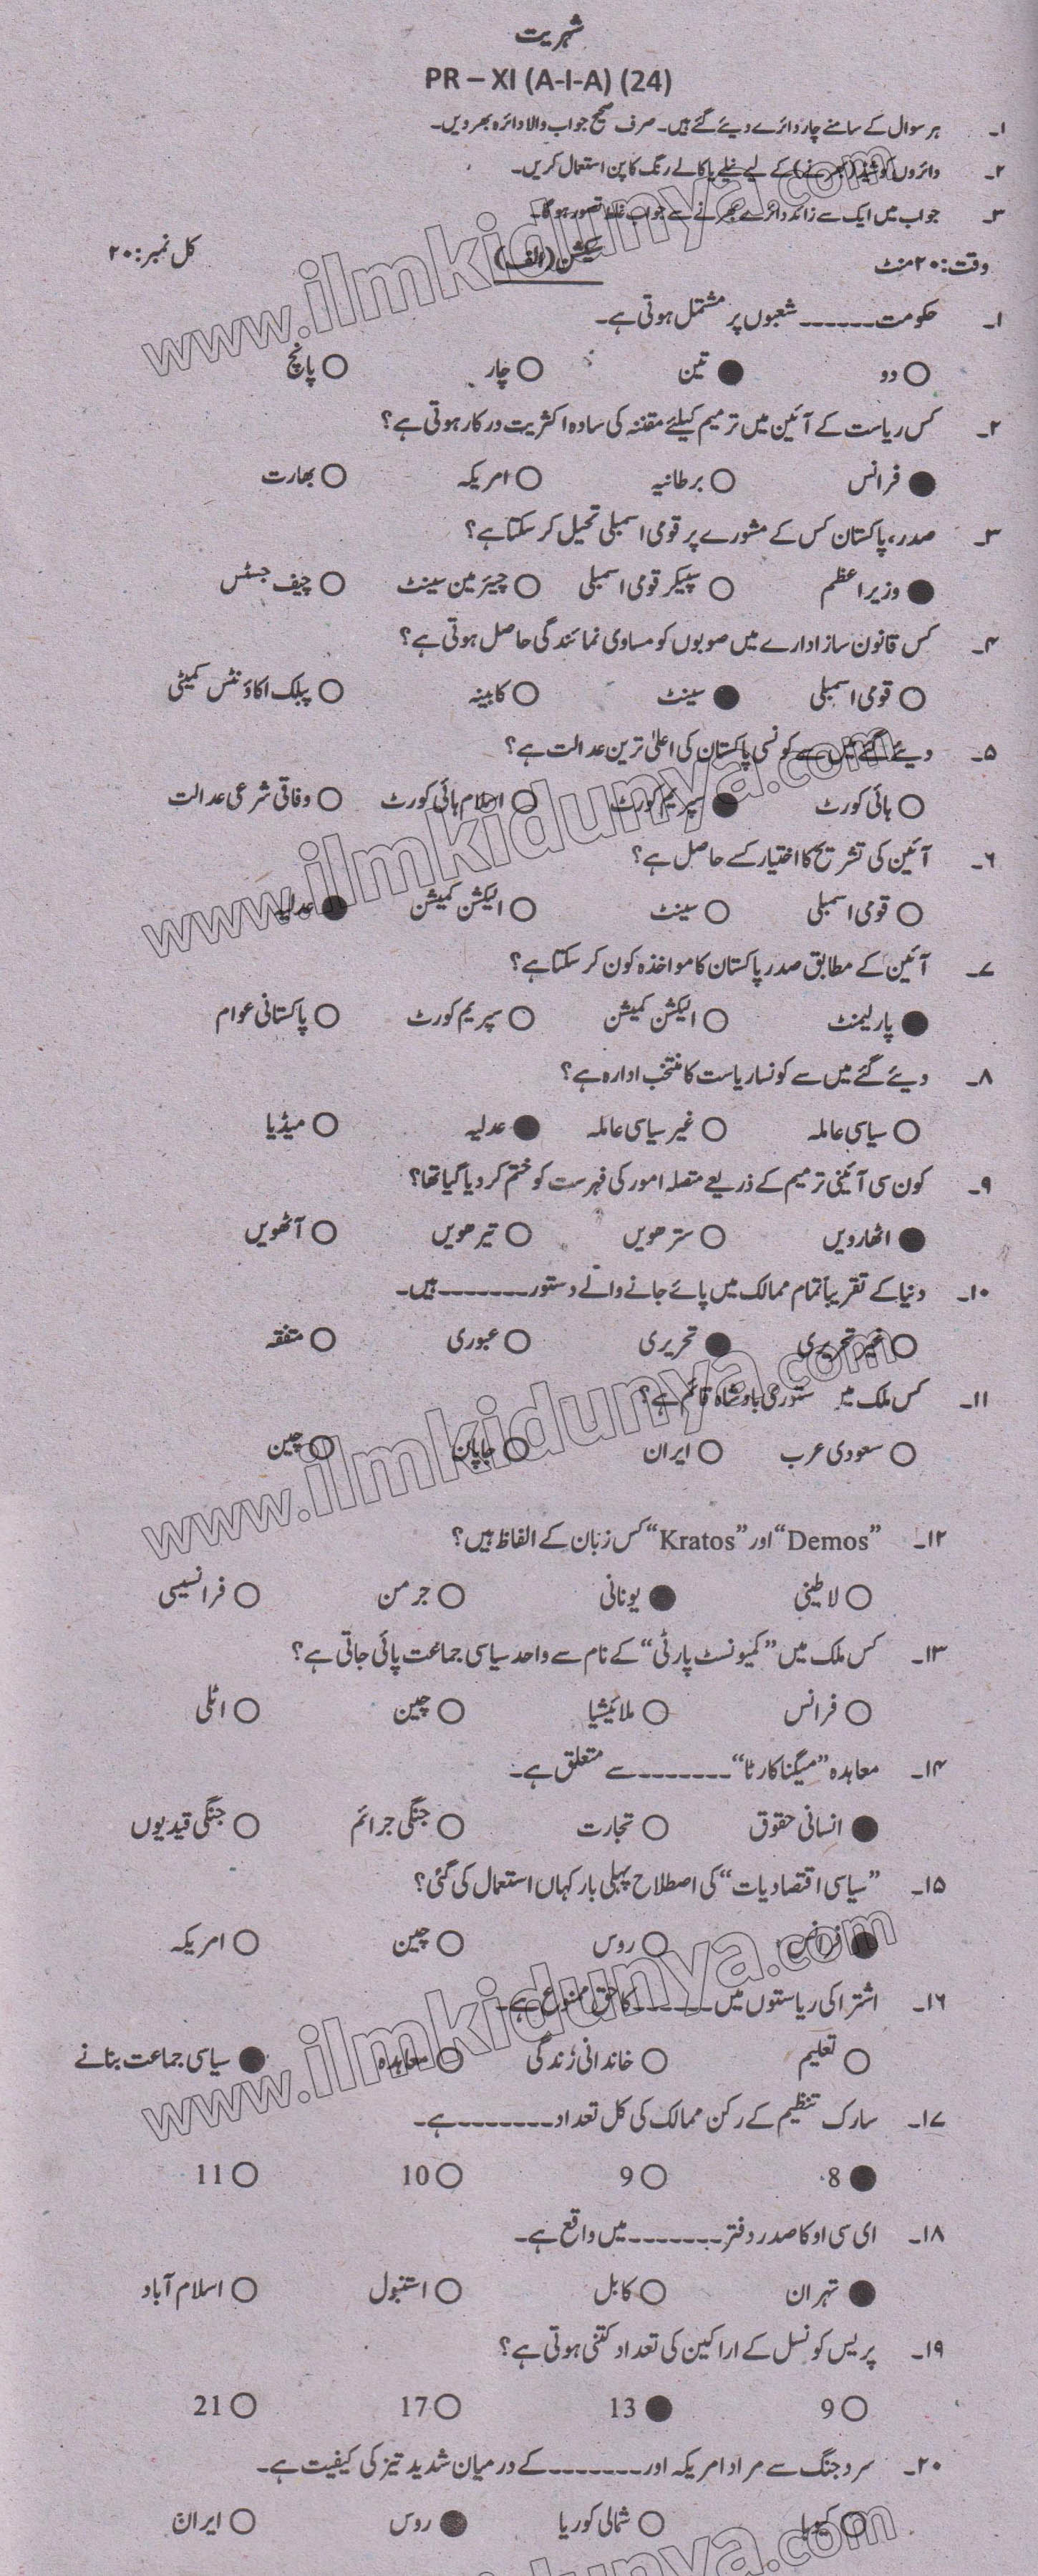 شہریت
PR – XI (A-I-A) (24)
۱۔ ہر سوال کے سامنے چار دائرے دیئے گئے ہیں۔ صرف صحیح جواب والا دائرہ بھر دیں۔
۲۔ دائروں کو شیڈ (بھرنے) کے لیے نیلے یا کالے رنگ کا پن استعمال کریں۔
۳۔ جواب میں ایک سے زائد دائرے بھرنے سے جواب غلط تصور ہوگا۔
وقت: ۲۰ منٹ سیکشن (الف) کل نمبر: ۲۰
۱۔ حکومت ------ شعبوں پر مشتمل ہوتی ہے۔
دو تین چار پانچ
۲۔ کس ریاست کے آئین میں ترمیم کیلئے مقننہ کی سادہ اکثریت درکار ہوتی ہے؟
فرانس برطانیہ امریکہ بھارت
۳۔ صدر، پاکستان کس کے مشورے پر قومی اسمبلی تحیل کر سکتا ہے؟
وزیراعظم سپیکر قومی اسمبلی چیئرمین سینٹ چیف جسٹس
۴۔ کس قانون ساز ادارے میں صوبوں کو مساوی نمائندگی حاصل ہوتی ہے؟
قومی اسمبلی سینٹ کابینہ پبلک اکاؤنٹس کمیٹی
۵۔ دیئے گئے میں سے کونسی پاکستان کی اعلیٰ ترین عدالت ہے؟
ہائی کورٹ سپریم کورٹ اسلام ہائی کورٹ وفاقی شرعی عدالت
۶۔ آئین کی تشریح کا اختیار کسے حاصل ہے؟
قومی اسمبلی سینٹ الیکشن کمیشن عدلیہ
۷۔ آئین کے مطابق صدر پاکستان کا مواخذہ کون کر سکتا ہے؟
پارلیمنٹ الیکشن کمیشن سپریم کورٹ پاکستانی عوام
۸۔ دیئے گئے میں سے کونسا ریاست کا منتخب ادارہ ہے؟
سیاسی عاملہ غیر سیاسی عاملہ عدلیہ میڈیا
۹۔ کون سی آئینی ترمیم کے ذریعے متصلہ امور کی فہرست کو ختم کر دیا گیا تھا؟
اٹھارویں سترھویں تیرھویں آٹھویں
۱۰۔ دنیا کے تقریباً تمام ممالک میں پائے جانے والے دستور ------- ہیں۔
غیر تحریری تحریری عبوری متفقہ
۱۱۔ کس ملک میں ستوری بادشاہ قائم ہے؟
سعودی عرب ایران جاپان چین
۱۲۔ ”Demos“ اور ”Kratos“ کس زبان کے الفاظ ہیں؟
لاطینی یونانی جرمن فرانسیسی
۱۳۔ کس ملک میں ”کمیونسٹ پارٹی“ کے نام سے واحد سیاسی جماعت پائی جاتی ہے؟
فرانس ملائیشیا چین اٹلی
۱۴۔ معاہدہ ”میگنا کارٹا“ ------- سے متعلق ہے۔
انسانی حقوق تجارت جنگی جرائم جنگی قیدیوں
۱۵۔ ”سیاسی اقتصادیات“ کی اصطلاح پہلی بار کہاں استعمال کی گئی؟
فرانس روس چین امریکہ
۱۶۔ اشتراکی ریاستوں میں ------ کا حق ممنوع ہے۔
تعلیم خاندانی زندگی معاہدہ سیاسی جماعت بنانے
۱۷۔ سارک تنظیم کے رکن ممالک کی کل تعداد ------- ہے۔
8 9 10 11
۱۸۔ ای سی او کا صدر دفتر ------- میں واقع ہے۔
تہران کابل استنبول اسلام آباد
۱۹۔ پریس کونسل کے اراکین کی تعداد کتنی ہوتی ہے؟
9 13 17 21
۲۰۔ سرد جنگ سے مراد امریکہ اور ------- کے درمیان شدید تیز کی کیفیت ہے۔
کیوبا شمالی کوریا روس ایران
www.ilmkidunya.com
www.ilmkidunya.com
www.ilmkidunya.com
www.ilmkidunya.com